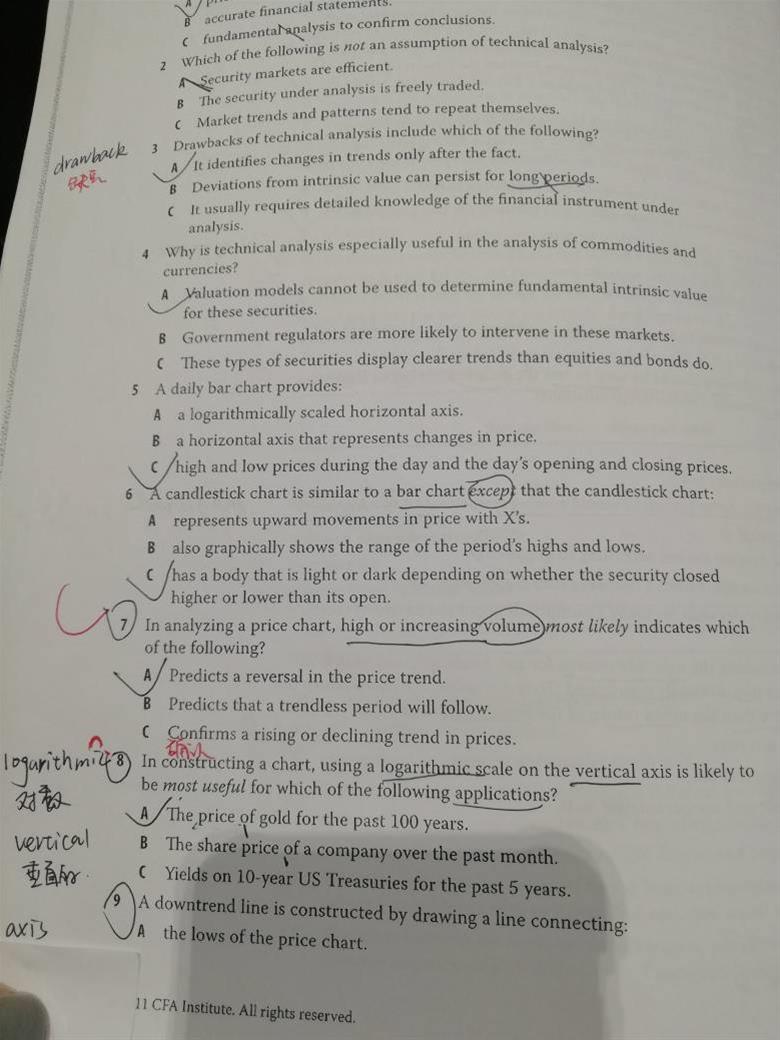 B accurate financial statements.
C fundamental analysis to confirm conclusions.
2 Which of the following is not an assumption of technical analysis?
A Security markets are efficient.
B The security under analysis is freely traded.
C Market trends and patterns tend to repeat themselves.
drawback
3 Drawbacks of technical analysis include which of the following?
A It identifies changes in trends only after the fact.
B Deviations from intrinsic value can persist for long periods.
C It usually requires detailed knowledge of the financial instrument under
analysis.
4 Why is technical analysis especially useful in the analysis of commodities and
currencies?
A Valuation models cannot be used to determine fundamental intrinsic value
for these securities.
B Government regulators are more likely to intervene in these markets.
C These types of securities display clearer trends than equities and bonds do.
5 A daily bar chart provides:
A a logarithmically scaled horizontal axis.
B a horizontal axis that represents changes in price.
C high and low prices during the day and the day's opening and closing prices.
6 A candlestick chart is similar to a bar chart except that the candlestick chart:
A represents upward movements in price with X's.
B also graphically shows the range of the period's highs and lows.
C has a body that is light or dark depending on whether the security closed
higher or lower than its open.
7 In analyzing a price chart, high or increasing volume most likely indicates which
of the following?
A Predicts a reversal in the price trend.
B Predicts that a trendless period will follow.
C Confirms a rising or declining trend in prices.
确认
logarithmic
8 In constructing a chart, using a logarithmic scale on the vertical axis is likely to
be most useful for which of the following applications?
对数
A The price of gold for the past 100 years.
vertical
B The share price of a company over the past month.
垂直的
C Yields on 10-year US Treasuries for the past 5 years.
9 A downtrend line is constructed by drawing a line connecting:
axis
A the lows of the price chart.
11 CFA Institute. All rights reserved.